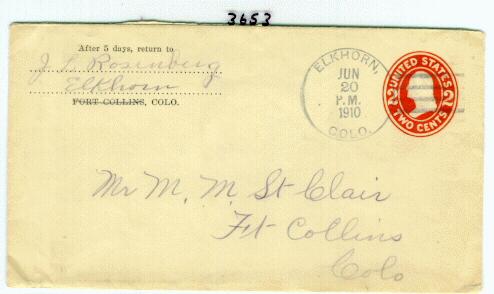 3653
After 5 days, return to
J L Rosenberg
Elkhorn
FORT COLLINS, COLO.
ELKHORN,
JUN
20
P.M.
1910
COLO.
UNITED STATES
2 2
TWO CENTS
Mr M. M St Clair
Ft Collins
Colo